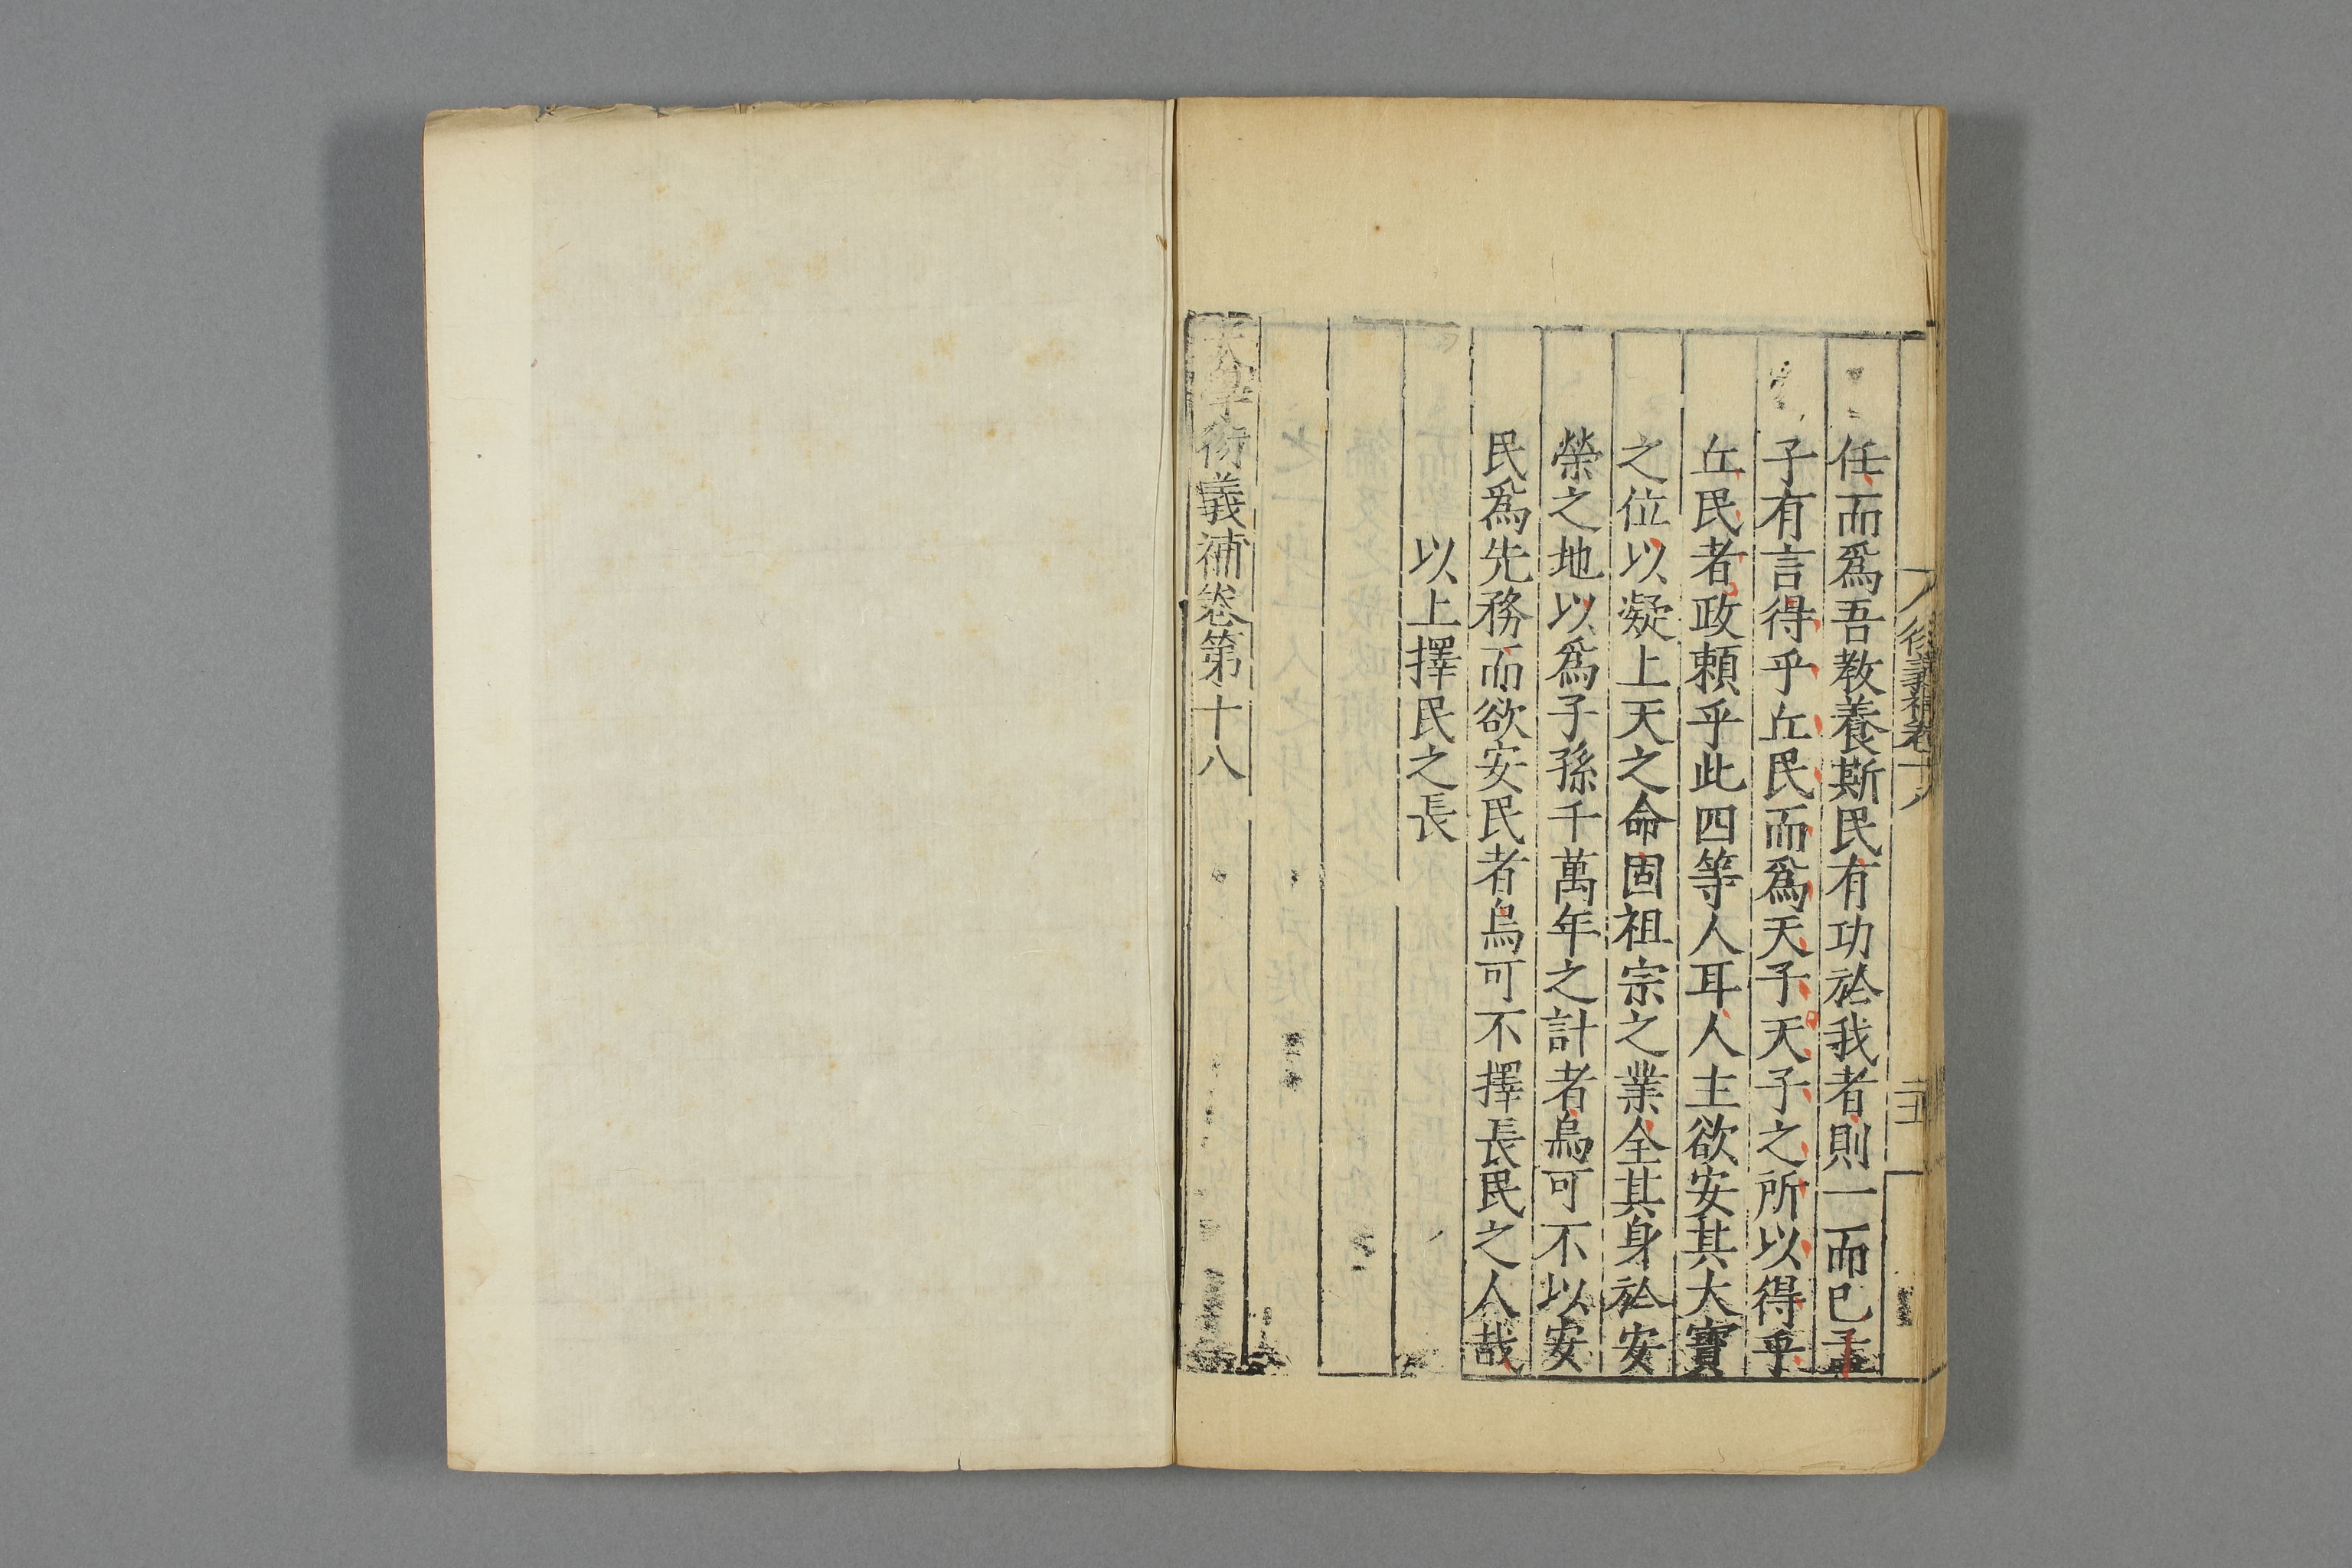 衍義補卷十八
任而爲吾敎養斯民有功於我者則一而已孟
子有言得乎丘民而爲天子天子之所以得乎
丘民者政賴乎此四等人耳人主欲安其大寶
之位以凝上天之命固祖宗之業全其身於安
榮之地以爲子孫千萬年之計者烏可不以安
民爲先務而欲安民者烏可不擇長民之人哉
以上擇民之長
大學衍義補卷第十八